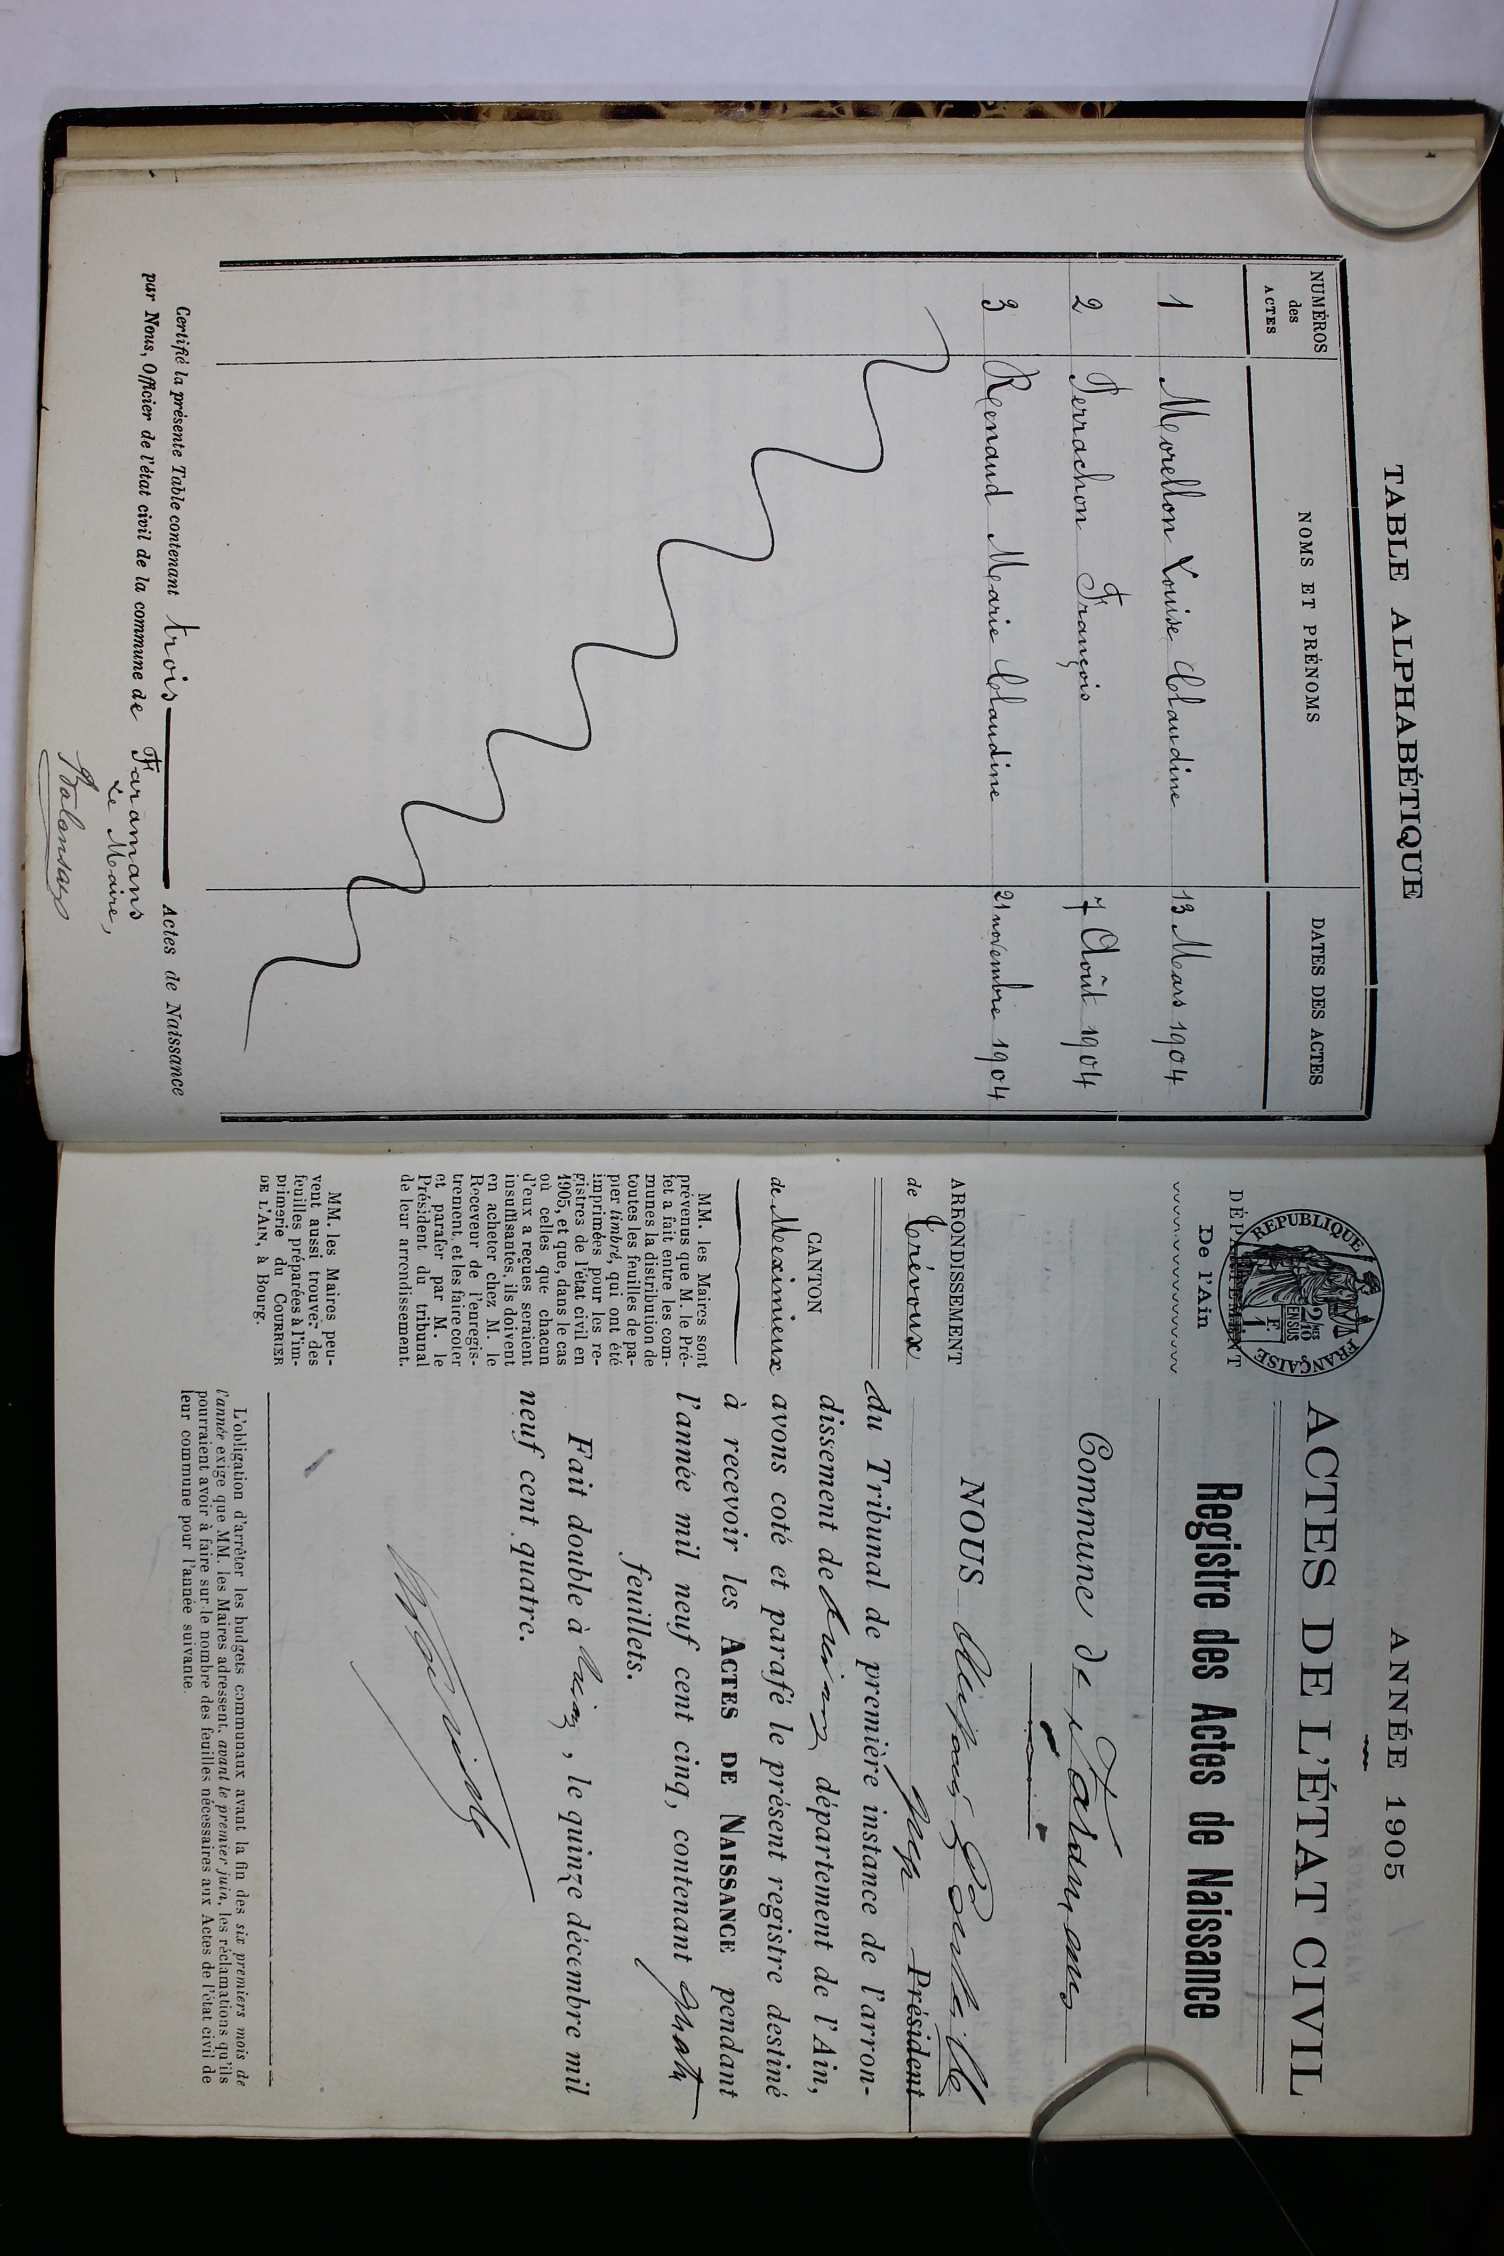 TABLE ALPHABÉTIQUE
NUMÉROS des ACTES
NOMS ET PRÉNOMS
DATES DES ACTES
1 Morellon Louise Claudine 13 Mars 1904
2 Perrachon François 7 Août 1904
3 Renaud Marie Claudine 21 novembre 1904
Certifié la présente Table contenant trois Actes de Naissance
par Nous, Officier de l'état civil de la commune de Faramans
Le Maire,
ANNÉE 1905
RÉPUBLIQUE FRANÇAISE
2/10 EN SUS
1 F.
DÉPARTEMENT
De l'Ain
ACTES DE L'ÉTAT CIVIL
Registre des Actes de Naissance
Commune de Faramans
ARRONDISSEMENT
de Trévoux
CANTON
de Meximieux
MM. les Maires sont
prévenus que M. le Pré-
fet a fait entre les com-
munes la distribution de
toutes les feuilles de pa-
pier timbré, qui ont été
imprimées pour les re-
gistres de l'état civil en
1905, et que, dans le cas
où celles que chacun
d'eux a reçues seraient
insuffisantes, ils doivent
en acheter chez M. le
Receveur de l'enregis-
trement, et les faire coter
et parafer par M. le
Président du tribunal
de leur arrondissement.
MM. les Maires peu-
vent aussi trouver des
feuilles préparées à l'im-
primerie du COURRIER
DE L'AIN, à Bourg.
NOUS
juge Président
du Tribunal de première instance de l'arron-
dissement de département de l'Ain,
avons coté et parafé le présent registre destiné
à recevoir les ACTES DE NAISSANCE pendant
l'année mil neuf cent cinq, contenant quatre
feuillets.
Fait double à , le quinze décembre mil
neuf cent quatre.
L'obligation d'arrêter les budgets communaux avant la fin des six premiers mois de
l'année exige que MM. les Maires adressent, avant le premier juin, les réclamations qu'ils
pourraient avoir à faire sur le nombre des feuilles nécessaires aux Actes de l'état civil de
leur commune pour l'année suivante.